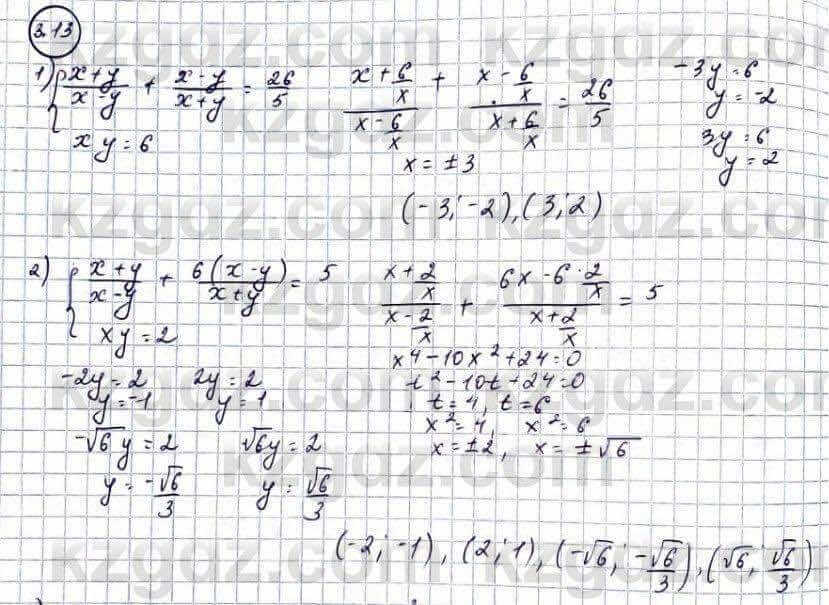 3.13
1) { (x+y)/(x-y) + (x-y)/(x+y) = 26/5
xy = 6
(x + 6/x)/(x - 6/x) + (x - 6/x)/(x + 6/x) = 26/5
x = ±3
-3y = 6
y = -2
3y = 6
y = 2
(-3; -2), (3; 2)
2) { (x+y)/(x-y) + 6(x-y)/(x+y) = 5
xy = 2
(x + 2/x)/(x - 2/x) + (6x - 6·2/x)/(x + 2/x) = 5
x⁴ - 10x² + 24 = 0
t² - 10t + 24 = 0
t = 4, t = 6
x² = 4, x² = 6
x = ±2, x = ±√6
-2y = 2 2y = 2
y = -1 y = 1
-√6y = 2 √6y = 2
y = -√6/3 y = √6/3
(-2; -1), (2; 1), (-√6; -√6/3), (√6; √6/3)
kzgdz.com